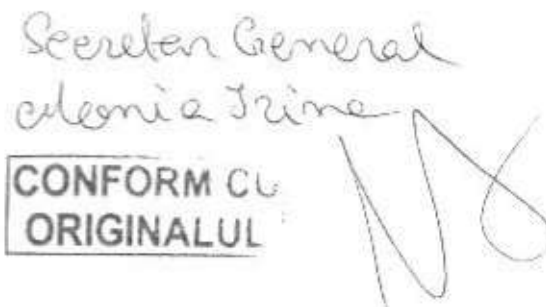 Secretar General
Irina
CONFORM CU
ORIGINALUL